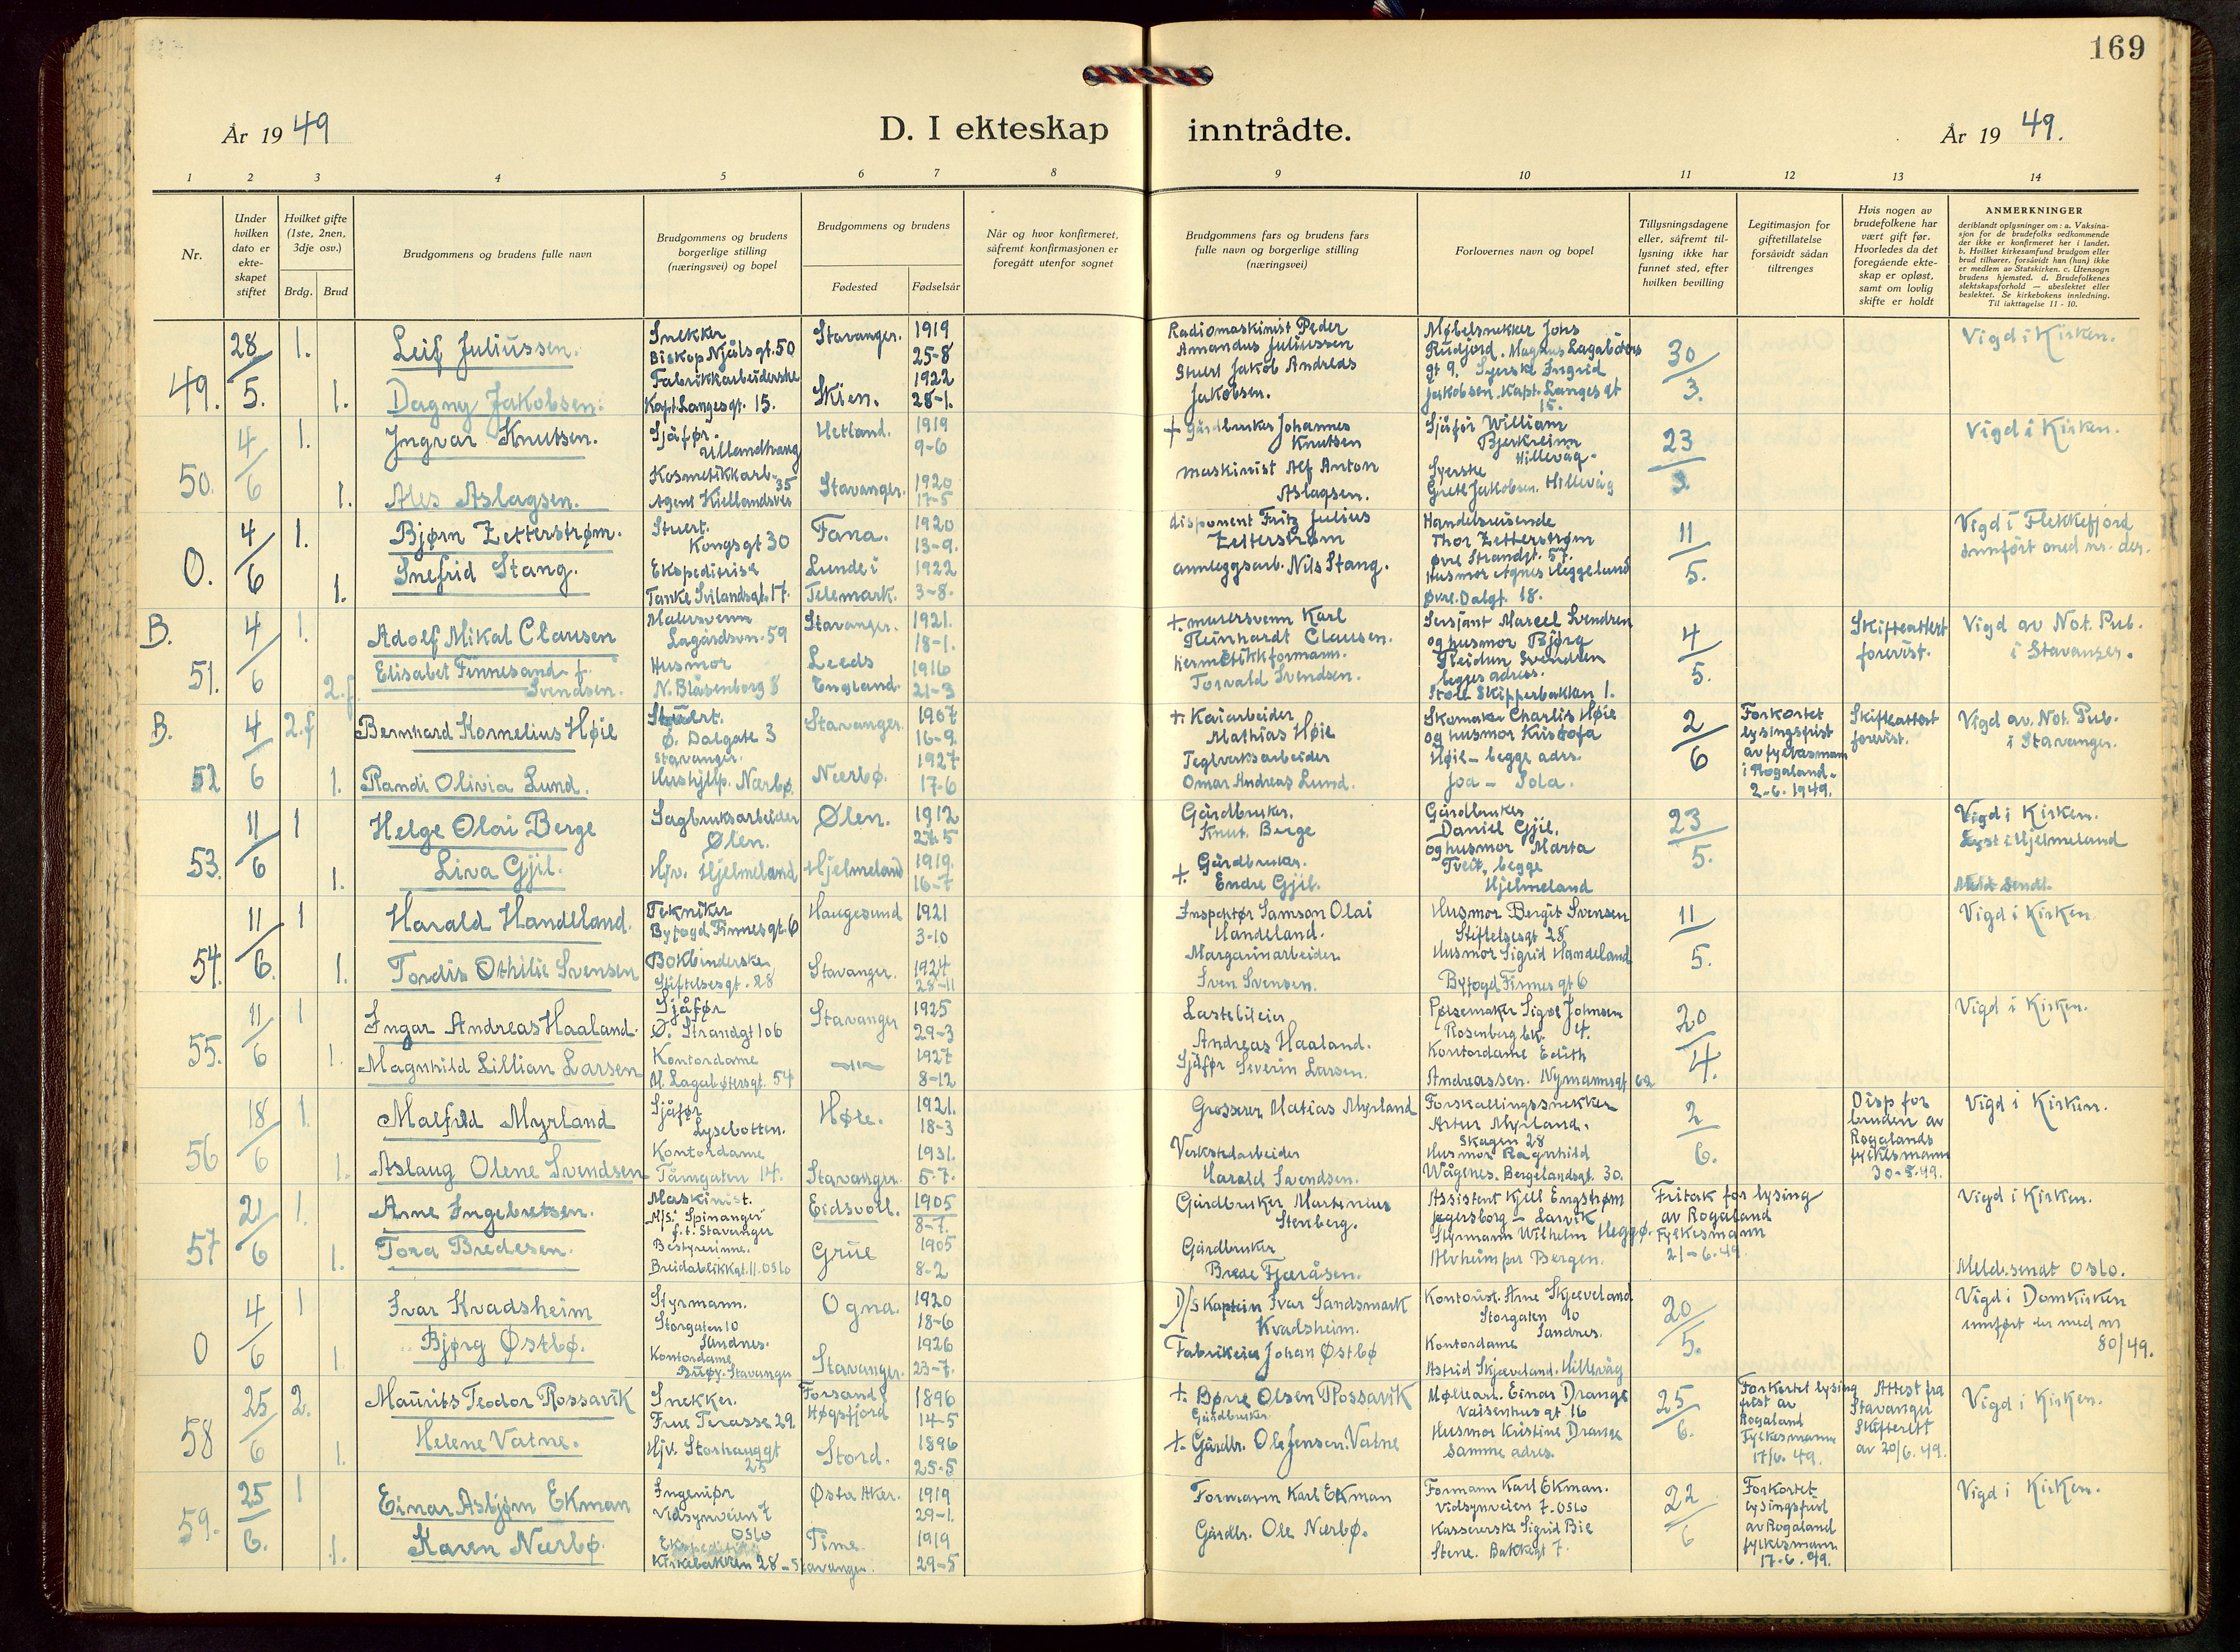 169
År 19 49
D. I ekteskap inntrådte.
År 19 49.
1 2 3 4 5 6 7 8 9 10 11 12 13 14
Nr.
Under hvilken dato er ekteskapet stiftet
Hvilket gifte (1ste, 2nen, 3dje osv.)
Brdg. Brud
Brudgommens og brudens fulle navn
Brudgommens og brudens borgerlige stilling (næringsvei) og bopel
Brudgommens og brudens
Fødested
Fødselsår
Når og hvor konfirmeret, såfremt konfirmasjonen er foregått utenfor sognet
Brudgommens fars og brudens fars fulle navn og borgerlige stilling (næringsvei)
Forlovernes navn og bopel
Tillysningsdagene eller, såfremt tillysning ikke har funnet sted, efter hvilken bevilling
Legitimasjon for giftetillatelse forsåvidt sådan tiltrenges
Hvis nogen av brudefolkene har vært gift før. Hvorledes da det foregående ekteskap er opløst, samt om lovlig skifte er holdt
ANMERKNINGER
deriblandt oplysninger om: a. Vaksinasjon for de brudefolks vedkommende der ikke er konfirmeret her i landet. b. Hvilket kirkesamfund brudgom eller brud tilhører, forsåvidt han (hun) ikke er medlem av Statskirken. c. Utensogn brudens hjemsted. d. Brudefolkenes slektskapsforhold — ubeslektet eller beslektet. Se kirkebokens innledning. Til iakttagelse 11 - 10.
49. 28/5. 1. 1.
Leif Juliussen.
Dagny Jakobsen.
Snekker
Biskop Njålsgt. 50
Fabrikkarbeiderske
Kapt. Langesgt. 15.
Stavanger. 1919 25-8
Skien. 1922 28-1.
Radiomaskinist Peder
Amandus Juliussen
Stuert Jakob Andreas
Jakobsen.
Møbelsnekker Johs
Rudjord. Magnus Lagabøters
gt 9. Syerske Ingrid
Jakobsen. Kapt. Langes gt
15.
30/3.
Vigd i Kirken.
50. 4/6 1. 1.
Ingvar Knutsen.
Ales Aslagsen.
Sjåfør.
Ullandhaug
Kosmetikkarb.
Agent Kiellandsvei 35
Hetland. 1919 9-6
Stavanger. 1920 17-5
+ Gårdbruker Johannes
Knutsen
maskinist Alf Anton
Aslagsen.
Sjåfør William
Bjerkreim
Hillevåg.
Syerske
Grete Jakobsen. Hillevåg
23/3.
Vigd i Kirken.
0. 4/6 1. 1.
Bjørn Zetterstrøm.
Snefrid Stang.
Stuert.
Kongsgt 30
Ekspeditrise
Tanke Svilandsgt. 17.
Fana. 1920 13-9.
Lunde i
Telemark. 1922 3-8.
disponent Fritz Julius
Zetterstrøm
annleggsarb. Nils Stang.
Handelsreisende
Thor Zetterstrøm
øvre Strandgt. 57.
Husmor Agnes Heggelund
Øvre. Dalgt. 18.
11/5.
Vigd i Flekkefjord
innført med nr. der.
B. 51. 4/6 1. 2.f.
Adolf Mikal Clausen
Elisabet Finnesand f.
Svendsen.
Malersvenn
Lagårdsvn. 59
Husmor
N. Blåsenborg 8
Stavanger. 1921. 18-1.
Leeds
England. 1916 21-3
+ murersvenn Karl
Reinhardt Clausen.
hermetikkformann.
Torvald Svendsen.
Sersjant Marcel Svendsen
og husmor Bjørg
Reidun Svendsen
begges adress.
Store Skipperbakken 1.
4/5.
Skifteattest
forevist.
Vigd av Not. Pub.
i Stavanger.
B. 52 4/6 2.f 1.
Bernhard Kornelius Høie
Randi Olivia Lund.
Stuert.
Ø. Dalgate 3
Stavanger.
Hushjelp. Nærbø.
Stavanger. 1907 16-9.
Nærbø. 1927 17-6
+ Kaiarbeider
Mathias Høie
Teglverksarbeider
Omar Andreas Lund.
Skomaker Charlis Høie
og husmor Kristofa
Høie - begge adr.
Joa - Sola.
2/6
Forkortet
lysingsfrist
av fylkesmann
i Rogaland.
2-6. 1949.
Skifteattest
forevist.
Vigd av. Not. Pub.
i Stavanger.
53. 11/6 1 1.
Helge Olai Berge
Liva Gjil.
Sagbruksarbeider
Ølen.
Hjv. Hjelmeland
Ølen. 1912 27.5
Hjelmeland 1919. 16-7
Gårdbruker.
Knut. Berge
+. Gårdbruker.
Endre Gjil.
Gårdbruker
Daniel Gjil.
og husmor Marta
Tveit, begge
Hjelmeland
23/5.
Vigd i Kirken.
Lyst i Hjelmeland
Meld. sendt.
54. 11/6. 1 1.
Harald Handeland.
Tordis Othilie Svensen
Tekniker
Byfogd Finnesgt. 6
Bokbinderske
Stiftelsesgt. 28
Haugesund 1921 3-10
Stavanger. 1924 28-11
Inspektør Samson Olai
Handeland.
Margarinarbeider
Sven Svensen.
Husmor Bergit Svensen
Stiftelsesgt 28
Husmor Sigrid Handeland
Byfogd Finnes gt 6
11/5.
Vigd i Kirken.
55. 11/6 1 1.
Ingar Andreas Haaland.
Magnhild Lillian Larsen
Sjåfør
Ø. Strandgt 106
Kontordame
M. Lagabøtersgt. 54
Stavanger 1925 29-3
-"- 1927 8-12
Lastebileier
Andreas Haaland.
Sjåfør Severin Larsen.
Pølsemaker Sigve Johnsen
Rosenberg bk. 4.
Kontordame Edith
Andreassen. Nymannsgt 62
20/4.
Vigd i Kirken.
56 18/6 1. 1.
Malfred Myrland
Aslaug Olene Svendsen
Sjåfør
Lysebotten.
Kontordame
Tårngaten 14.
Høle. 1921. 18-3
Stavanger. 1931. 5-7.
Grosserer Matias Myrland
Verkstedarbeider
Harald Svendsen.
Forskallingssnekker
Artur Myrland.
Skagen 28
Husmor Ragnhild
Wågenes. Bergelandsgt. 30.
2/6.
Disp for
bruden av
Rogalands
fylkesmann
30-5.49.
Vigd i Kirken.
57 21/6 1. 1.
Arne Ingebretsen.
Tora Bredesen.
Maskinist.
M/S. "Spinanger"
f. t. Stavanger
Bestyrerinne.
Breidablikkgt. 11. Oslo
Eidsvoll. 1905 8-7.
Grue 1905 8-2
Gårdbruker Martinius
Stenberg.
Gårdbruker
Brede Fjæråsen.
Assistent Kjell Engstrøm
Jegersborg - Larvik
Styrmann Wilhelm Heggø.
Alvheim pr Bergen.
Fritak for lysing
av Rogaland
Fylkesmann
21-6.49
Vigd i Kirken.
Meld. sendt Oslo.
0 4/6 1 1.
Ivar Kvadsheim
Bjørg Østbø.
Styrmann.
Storgaten 10
Sandnes.
Kontordame
Buøy. Stavanger
Ogna. 1920 18-6
Stavanger. 1926 23-7.
D/S Kaptein Ivar Sandsmark
Kvadsheim.
Fabrikeier Johan Østbø
Kontorist. Arne Skjæveland
Storgaten 10
Sandnes.
Kontordame
Astrid Skjæveland. Hillevåg
20/5.
Vigd i Domkirken
innført der med nr
80/49.
58 25/6 2. 1.
Maurits Teodor Rossavik
Helene Vatne.
Snekker.
Frue Terasse 29.
Hjv. Storhauggt
25
Forsand
Høgsfjord 1896 14-5
Stord. 1896 25-5
+. Børe Olsen Rossavik
Gårdbruker
+. Gårdbr. Ole Jensen. Vatne
Møllearb. Einar Drange
Vaisenhusgt 16
Husmor Kristine Drange
Samme adres.
25/6.
Forkortet lysing
frist av
Rogaland
Fylkesmann
17/6. 49.
Attest fra
Stavanger
Skifterett
av 20/6. 49.
Vigd i Kirken.
59. 25/6. 1 1.
Einar Asbjørn Ekman
Karen Nærbø.
Ingeniør
Vidsynveien 7
Oslo
Ekspeditrise
Kirkebakken 28 - Stavanger.
Østre Aker. 1919 29-1.
Time. 1919 29-5
Formann Karl Ekman
Gårdbr. Ole Nærbø.
Formann Karl Ekman.
Vidsynveien 7. Oslo
Kassererske Sigrid Bie
Stene. Bakkegt 7.
22/6
Forkortet
lysingsfrist
av Rogaland
fylkesmann
17-6. 49.
Vigd i Kirken.